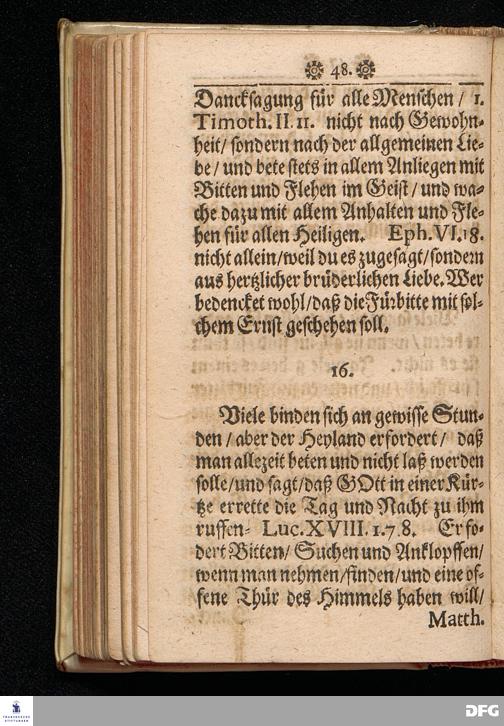 48.
Danckſagung für alle Menſchen / 1.
Timoth. II. 11. nicht nach Gewohn-
heit/ ſondern nach der allgemeinen Lie-
be / und bete ſtets in allem Anliegen mit
Bitten und Flehen im Geiſt / und wa-
che dazu mit allem Anhalten und Fle-
hen für allen Heiligen. Eph. VI. 18.
nicht allein/weil du es zugeſagt/ſondern
aus hertzlicher brüderlichen Liebe. Wer
bedencket wohl/daß die Fürbitte mit ſol-
chem Ernſt geſchehen ſoll.
16.
Viele binden ſich an gewiſſe Stun-
den / aber der Heyland erfordert / daß
man allezeit beten und nicht laß werden
ſolle/und ſagt/daß GOtt in einer Kür-
tze errette die Tag und Nacht zu ihm
ruffen- Luc. XVIII. 1.7 8. Er fo-
dert Bitten/ Suchen und Anklopffen/
wenn man nehmen/finden/und eine of-
fene Thür des Himmels haben will/
Matth.
FRANCKESCHE
STIFTUNGEN
DFG